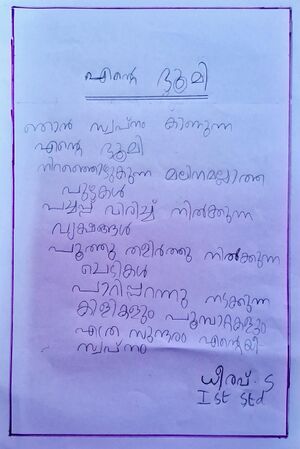 എന്റെ ഭൂമി
ഞാൻ സ്വപ്നം കാണുന്ന
എന്റെ ഭൂമി
നിറഞ്ഞൊഴുകുന്ന മലിനമല്ലാത്ത
പുഴകൾ
പച്ചപ്പ് വിരിച്ച് നിൽക്കുന്ന
വൃക്ഷങ്ങൾ
പൂത്തു തളിർത്തു നിൽക്കുന്ന
ചെടികൾ
പാറിപ്പറന്നു നടക്കുന്ന
കിളികളും പൂമ്പാറ്റകളും
എത്ര സുന്ദരം എന്റെയീ
സ്വപ്നം
ധീരവ്. S
Ist Std